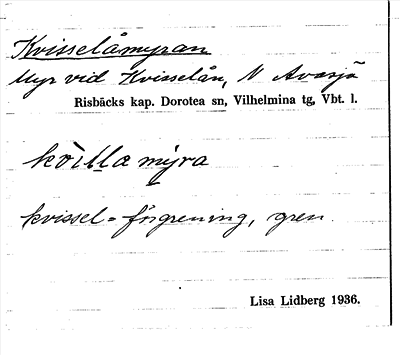 Kvisselåmyran
Myr vid Kvisselån, N Avasjö
Risbäcks kap. Dorotea sn, Vilhelmina tg, Vbt. l.
mýra
kvissel = förgrening, gren.
Lisa Lidberg 1936.